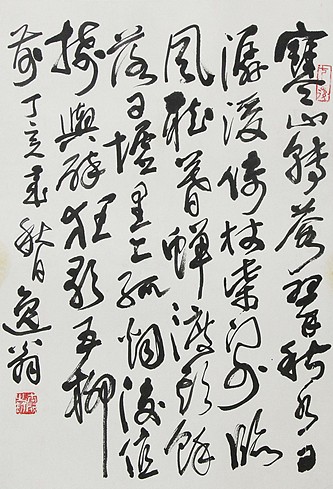 寒山轉蒼翠秋水日
潺湲倚杖柴门外臨
风聽暮蟬渡头餘
落日墟里上孤烟復值
接輿醉狂歌五柳
前丁亥秋日逸翁